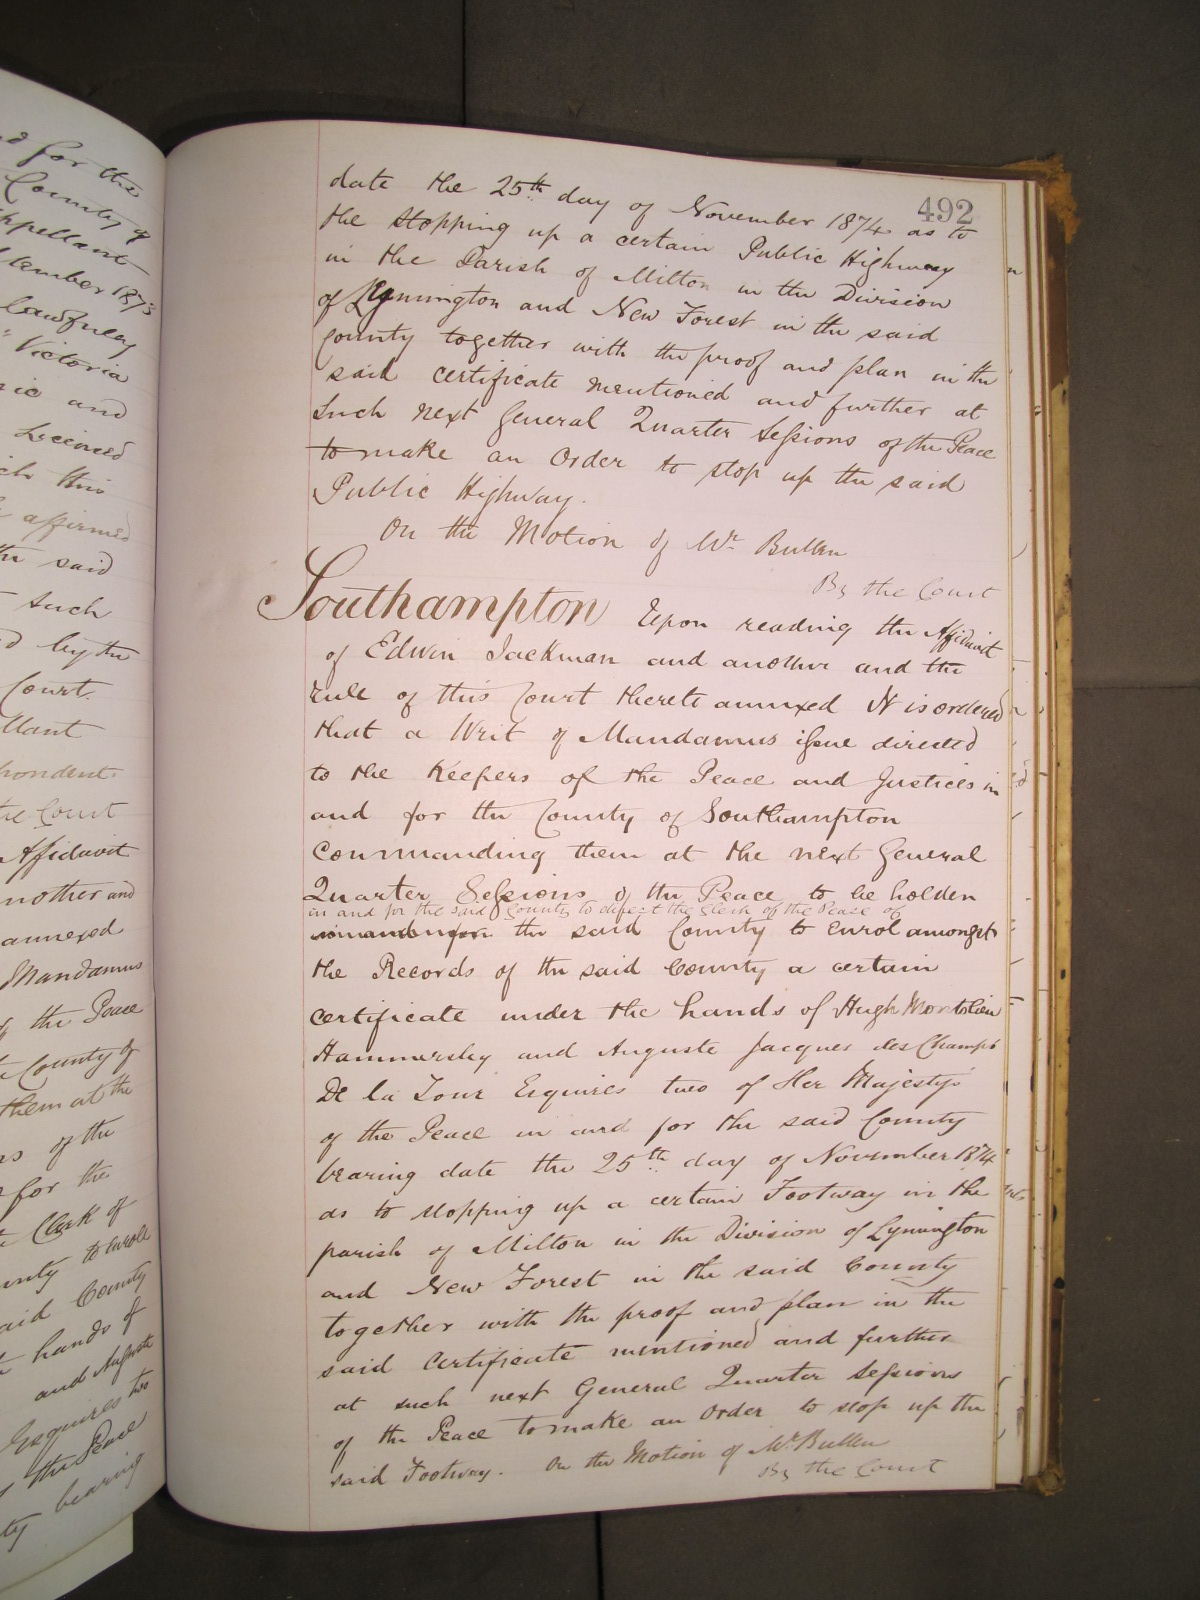 d for the
County of
ppellant
tember 1873
lawfully
Victoria
and
licensed
this
affirmed
the said
such
d by the
Court.
llant
pondent
the Court
Affidavit
nother and
annexed
Mandamus
of the Peace
County of
them at the
of the
for the
Clerk of
unty to enrole
aid County
hands of
and Auguste
Esquires two
the Peace
ty bearing
492
date the 25th day of November 1874 as to
the stopping up a certain Public Highway
in the Parish of Milton in the Division
of Lymington and New Forest in the said
County together with the proof and plan in the
said certificate mentioned and further at
such next General Quarter Sessions of the Peace
to make an Order to stop up the said
Public Highway.
On the Motion of Mr Bullen
By the Court
Southampton Upon reading the Affidavit
of Edwin Jackman and another and the
rule of this Court thereto annexed It is ordered
that a Writ of Mandamus issue directed
to the Keepers of the Peace and Justices in
and for the County of Southampton
commanding them at the next General
Quarter Sessions of the Peace to be holden
in and for the said County to direct the Clerk of the Peace of
the said County to enrol amongst
the Records of the said County a certain
certificate under the hands of Hugh
Hammersley and Auguste Jacques des Champs
De la Tour Esquires two of Her Majesty's
of the Peace in and for the said County
bearing date the 25th day of November 1874
as to stopping up a certain Footway in the
parish of Milton in the Division of Lymington
and New Forest in the said County
together with the proof and plan in the
said Certificate mentioned and further
at such next General Quarter Sessions
of the Peace to make an Order to stop up the
said Footway. On the Motion of Mr Bullen
By the Court